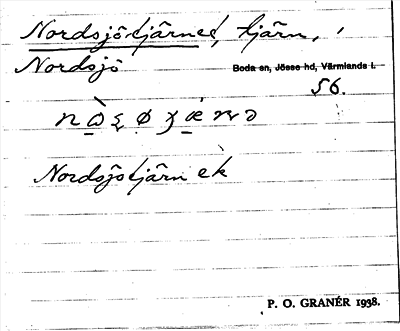 Nordsjötjärnet, tjärn, i
Nordsjö
Boda sn, Jösse hd, Värmlands l.
56.
Nordsjötjärn ek
P. O. GRANÉR 1938.